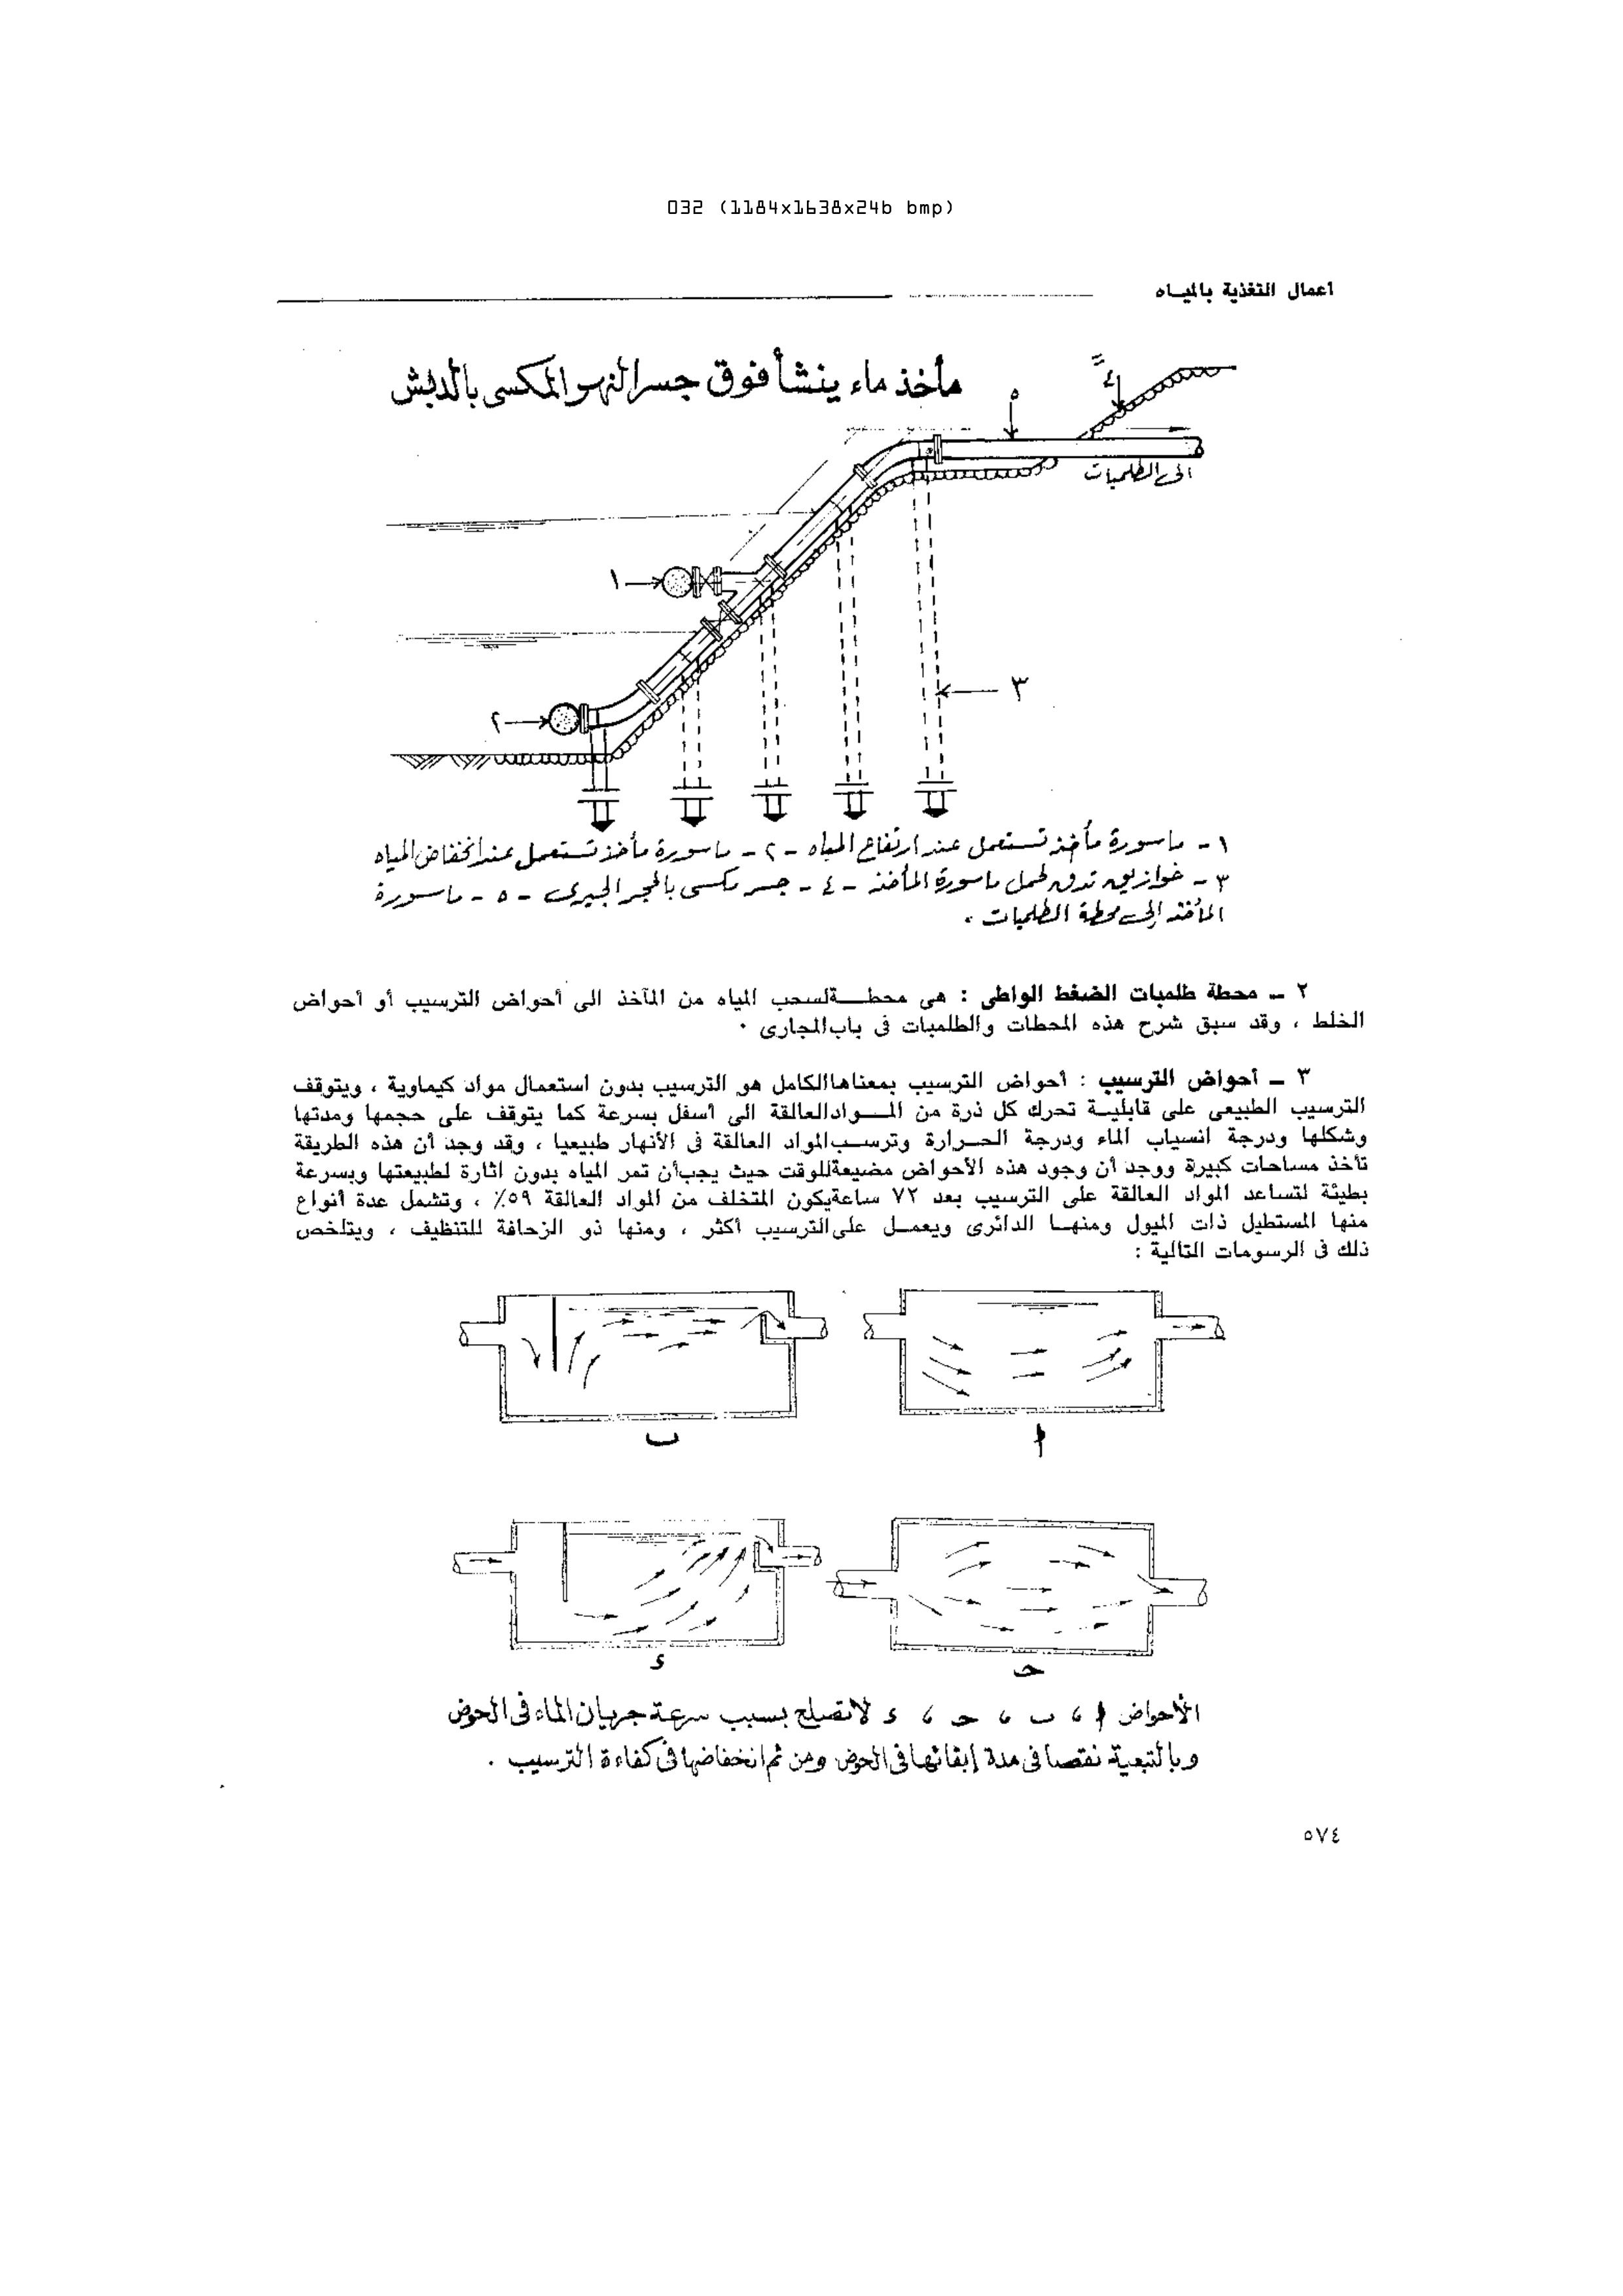 032 (1184x1638x24b bmp)
أعمال التغذية بالميـاه
مأخذ ماء ينشأ فوق جسر النهر المكسى بالدبش
٤
٥
الى الطلمبات
١
٣
٢
١ - ماسورة مأخذ تستعمل عند ارتفاع المياه - ٢ - ماسورة مأخذ تستعمل عند انخفاض المياه
٣ - خوازيق تدق لحمل ماسورة المأخذ - ٤ - جسر مكسى بالحجر الجيرى - ٥ - ماسورة
المأخذ إلى محطة الطلمبات .
٢ ــ محطة طلمبات الضغط الواطى : هى محطـــة لسحب المياه من المآخذ الى أحواض الترسيب أو أحواض
الخلط ، وقد سبق شرح هذه المحطات والطلمبات فى باب المجارى .
٣ ــ أحواض الترسيب : أحواض الترسيب بمعناها الكامل هو الترسيب بدون استعمال مواد كيماوية ، ويتوقف
الترسيب الطبيعى على قابليـة تحرك كل ذرة من المــواد العالقة الى أسفل بسرعة كما يتوقف على حجمها ومدتها
وشكلها ودرجة انسياب الماء ودرجة الحـرارة وترسـب المواد العالقة فى الأنهار طبيعيا ، وقد وجد أن هذه الطريقة
تأخذ مساحات كبيرة ووجد أن وجود هذه الأحواض مضيعة للوقت حيث يجب أن تمر المياه بدون اثارة لطبيعتها وبسرعة
بطيئة لتساعد المواد العالقة على الترسيب بعد ٧٢ ساعة يكون المتخلف من المواد العالقة ٥٩٪ ، وتشمل عدة أنواع
منها المستطيل ذات الميول ومنهـا الدائرى ويعمـل على الترسيب أكثر ، ومنها ذو الزحافة للتنظيف ، ويتلخص
ذلك فى الرسومات التالية :
أ
ب
حـ
د
الأحواض أ ، ب ، حـ ، د لا تصلح بسبب سرعة جريان الماء فى الحوض
وبالتبعية نقصا فى مدة إبقائها فى الحوض ومن ثم انخفاضها فى كفاءة الترسيب .
٥٧٤